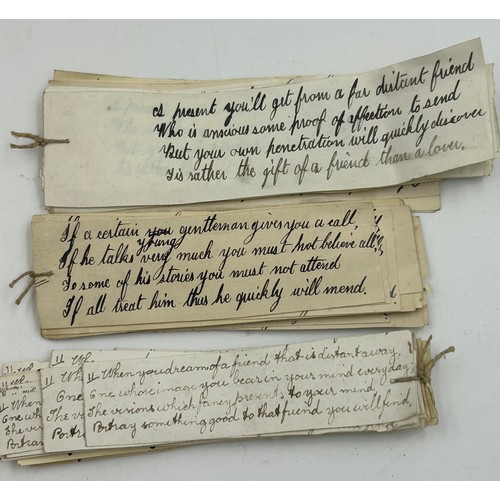 A present you'll get from a far distant friend
Who is anxious some proof of affection to send
But your own penetration will quickly discover
Tis rather the gift of a friend than a lover.
"If a certain you gentleman gives you a call,
young
If he talks very much you must not believe all,
To some of his stories you must not attend
If all treat him thus he quickly will mend.
" When you dream of a friend that is distant away,
One whose image you bear in your mind everyday
The visions which fancy presents to your mind
Portray something good to that friend you will find,
" When
One
The vi
Portra
" When
One wh
The visi
Portray